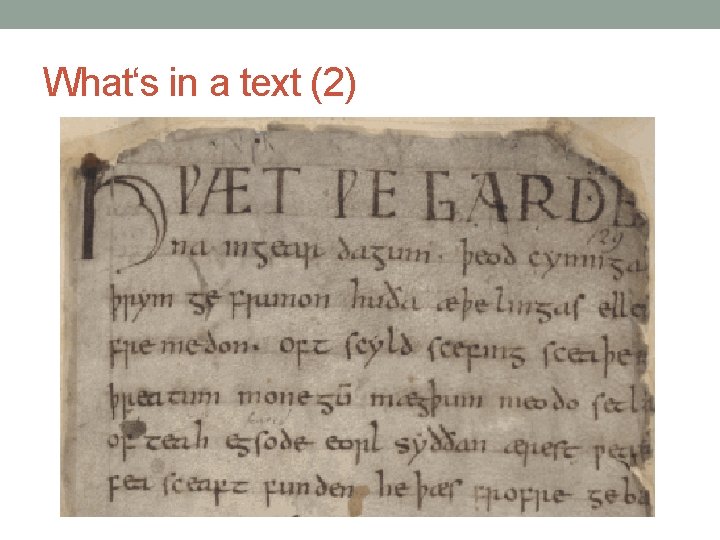 What‘s in a text (2)
HǷÆT ǷE GARDE
129
na ingear dagum. þeod cyninga
þrym ge frunon huða æþe lingas elle
fre medon. oft scyld scefing sceaþe
þreatum monegū mægþum meodo setla
of teah egsode eorl syððan ærest ƿear
fea sceaft funden he þæs frofre geba